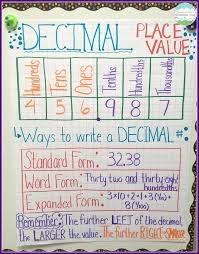 DECIMAL PLACE VALUE
Hundreds Tens Ones Tenths Hundredths Thousandths
4 5 6 9 8 7
Ways to write a DECIMAL #
Standard Form: 32.38
Word Form: Thirty two and thirty eight
hundredths
Expanded Form: 3×10 + 2×1 + 3(1/10) +
8(1/100)
Remember: The further LEFT of the decimal,
the LARGER the value. The further RIGHT